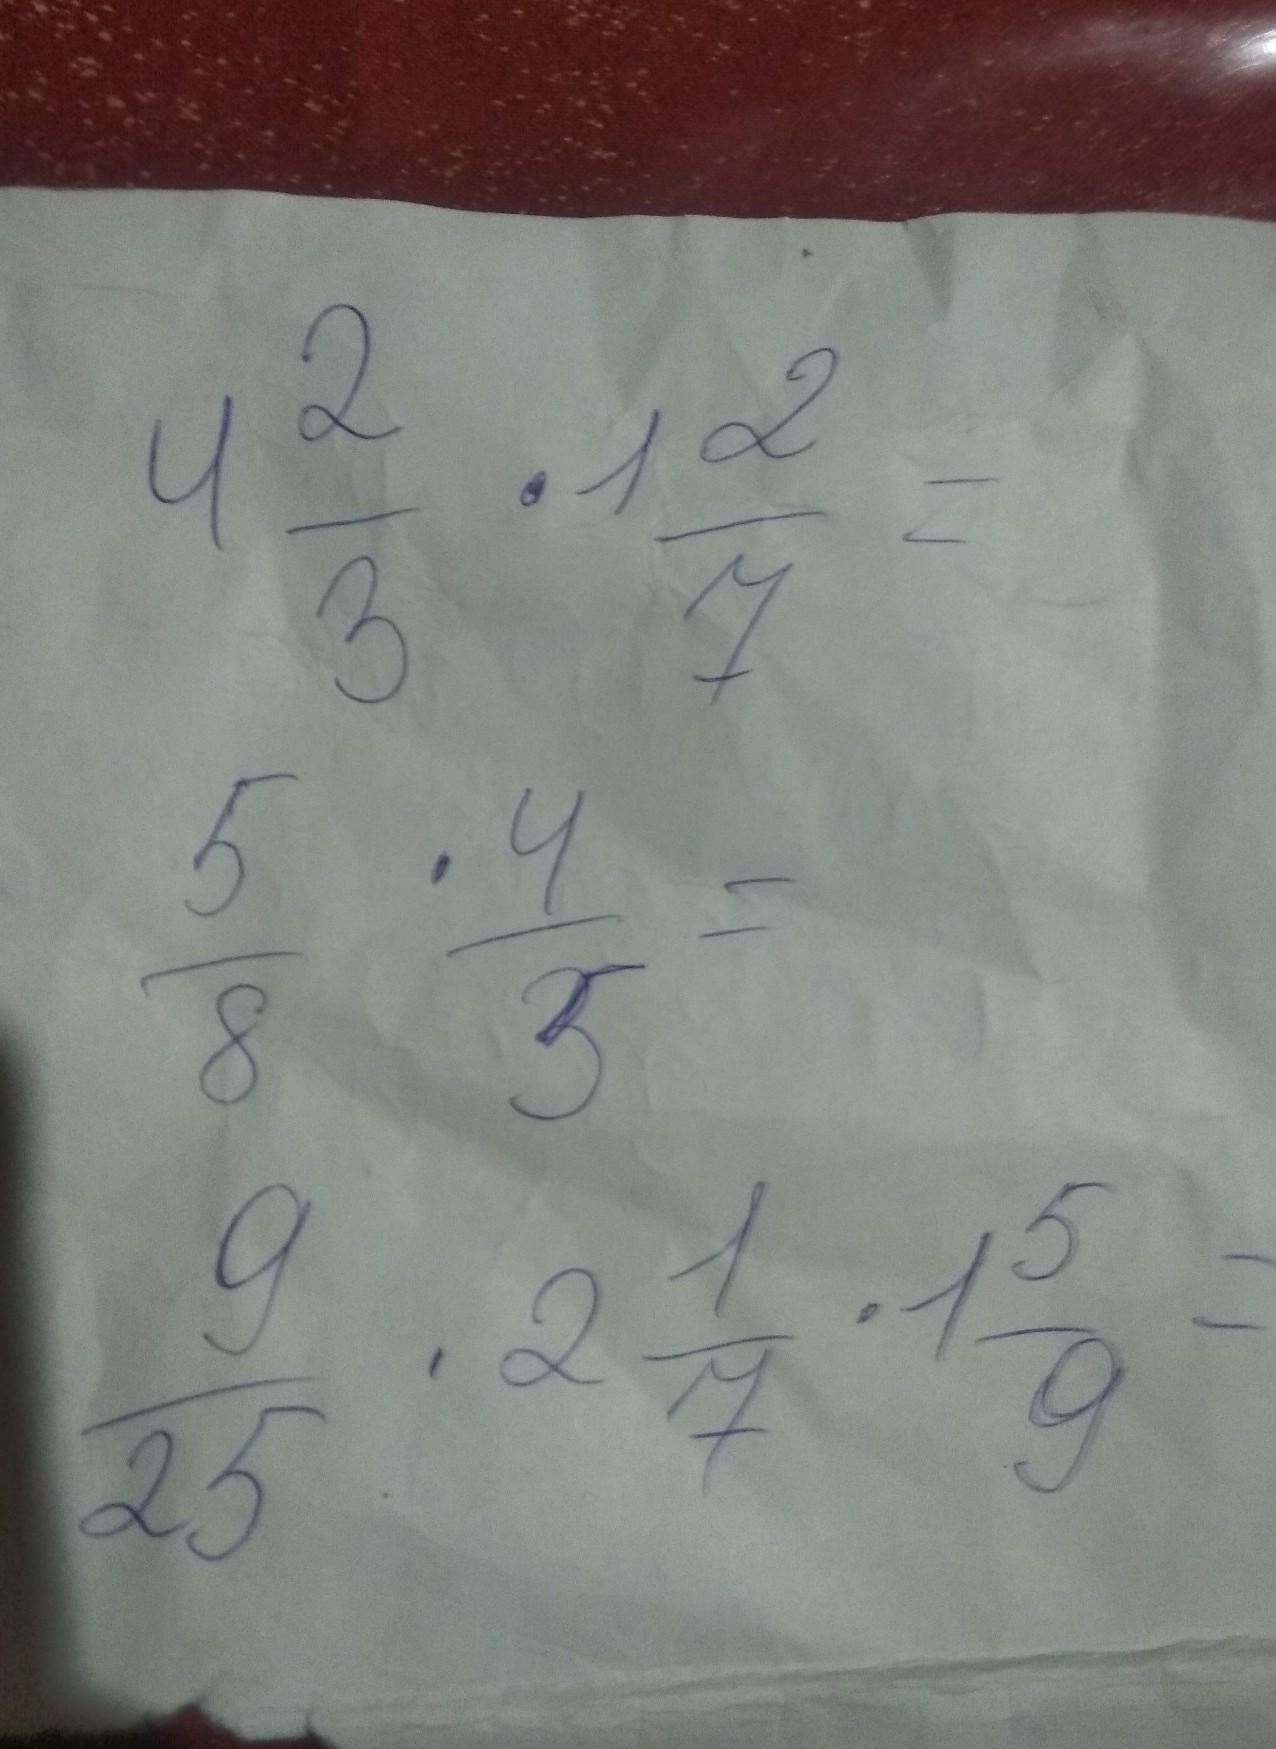 4 2/3 · 1 2/7 =
5/8 · 4/5 =
9/25 · 2 1/7 · 1 5/9 =